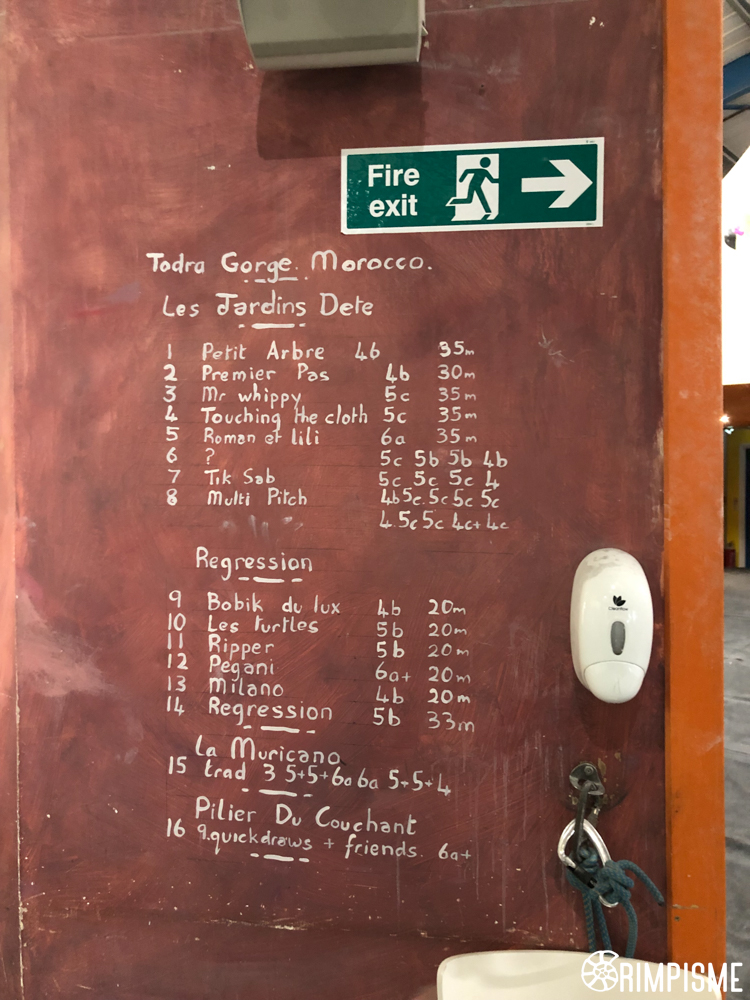 Fire
exit
Todra Gorge. Morocco.
Les Jardins Dete
1 Petit Arbre 4b 35m
2 Premier Pas 4b 30m
3 Mr whippy 5c 35m
4 Touching the cloth 5c 35m
5 Roman et lili 6a 35m
6 ? 5c 5b 5b 4b
7 Tik Sab 5c 5c 5c 4
8 Multi Pitch 4b 5c.5c 5c 5c
4.5c 5c 4c+ 4c
Regression
9 Bobik du lux 4b 20m
10 Les turtles 5b 20m
11 Ripper 5b 20m
12 Pegani 6a+ 20m
13 Milano 4b 20m
14 Regression 5b 33m
La Muricano
15 trad 3 5+5+6a 6a 5+5+4
Pilier Du Couchant
16 9.quickdraws + friends. 6a+
GRIMPISME